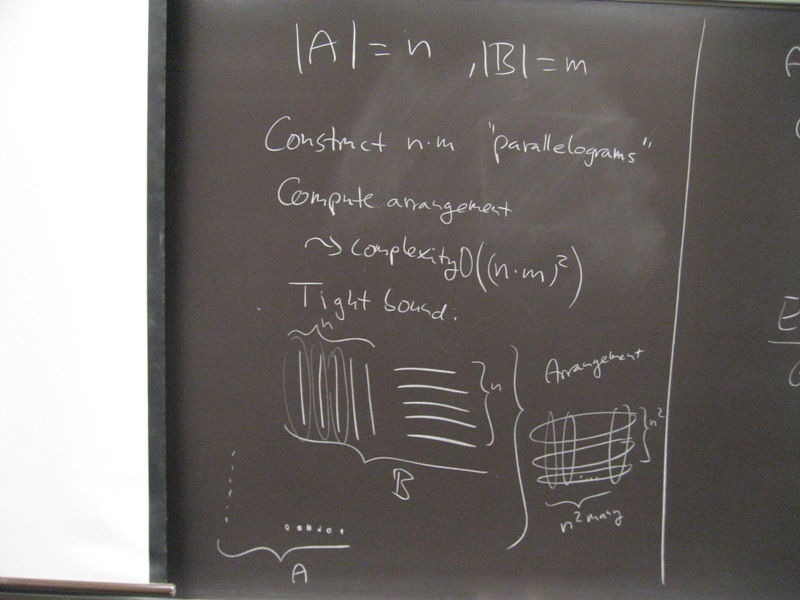 |A| = n , |B| = m
Construct n·m "parallelograms"
Compute arrangement
⤳ complexity O((n·m)²)
Tight bound:
n
n
B
A
Arrangement
n²
n² many
A
E